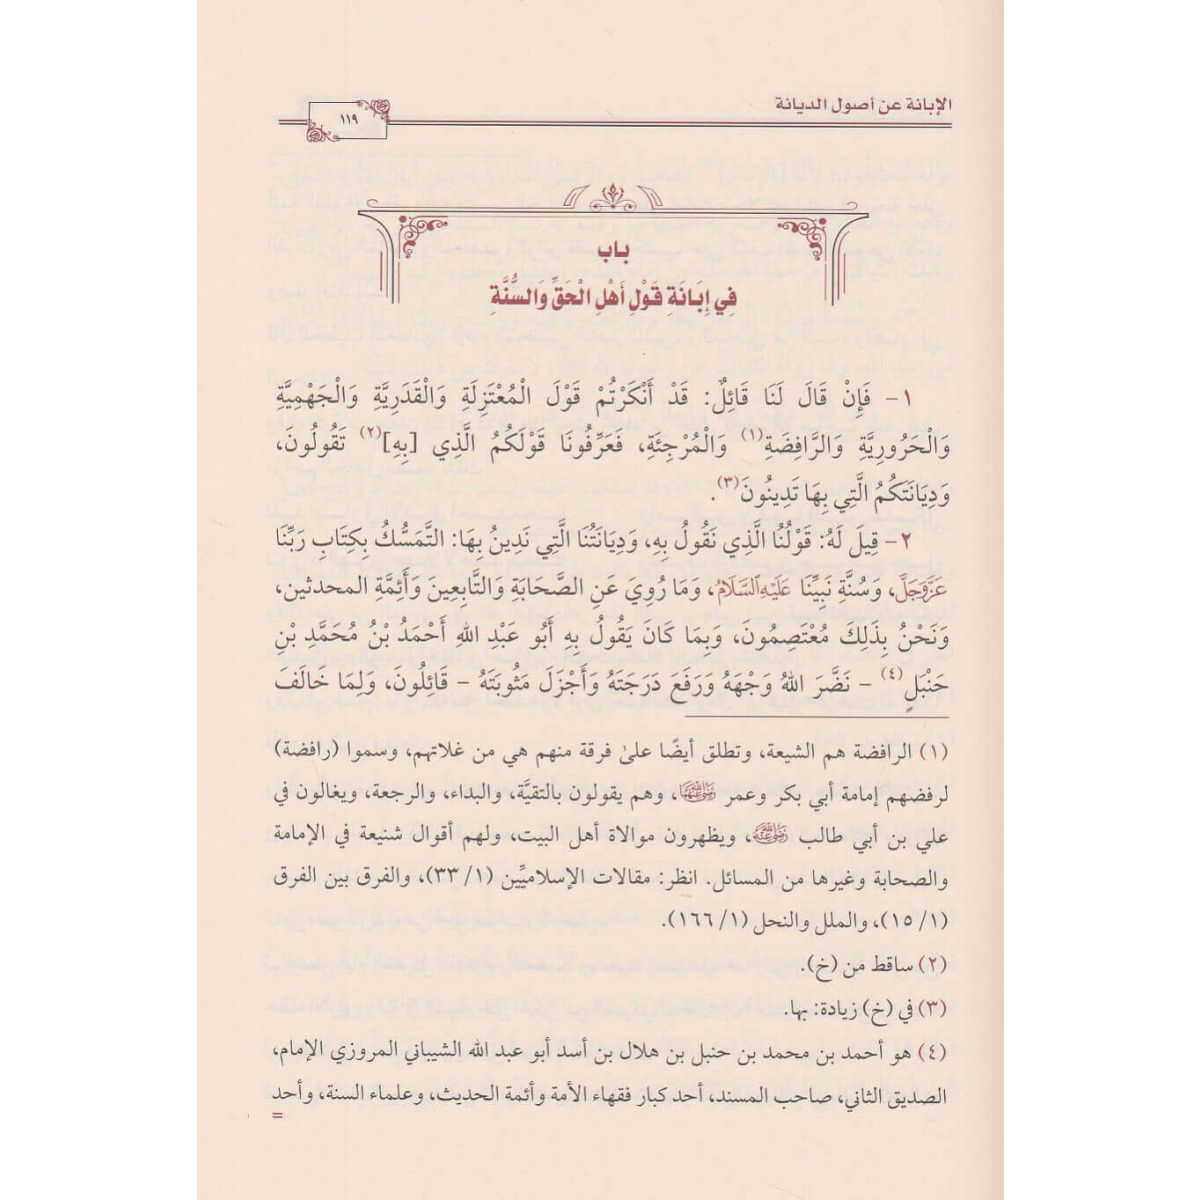 الإبانة عن أصول الديانة
١١٩
باب
فِي إِبَانَةِ قَوْلِ أَهْلِ الْحَقِّ وَالسُّنَّةِ
١- فَإِنْ قَالَ لَنَا قَائِلٌ: قَدْ أَنْكَرْتُمْ قَوْلَ الْمُعْتَزِلَةِ وَالْقَدَرِيَّةِ وَالْجَهْمِيَّةِ
وَالْحَرُورِيَّةِ وَالرَّافِضَةِ(١) وَالْمُرْجِئَةِ، فَعَرِّفُونَا قَوْلَكُمُ الَّذِي [بِهِ](٢) تَقُولُونَ،
وَدِيَانَتَكُمُ الَّتِي بِهَا تَدِينُونَ(٣).
٢- قِيلَ لَهُ: قَوْلُنُا الَّذِي نَقُولُ بِهِ، وَدِيَانَتُنَا الَّتِي نَدِينُ بِهَا: التَّمَسُّكُ بِكِتَابِ رَبِّنَا
عَزَّوَجَلَّ، وَسُنَّةِ نَبِيِّنَا عَلَيْهِ السَّلَامُ، وَمَا رُوِيَ عَنِ الصَّحَابَةِ وَالتَّابِعِينَ وَأَئِمَّةِ المحدثين،
وَنَحْنُ بِذَلِكَ مُعْتَصِمُونَ، وَبِمَا كَانَ يَقُولُ بِهِ أَبُو عَبْدِ اللهِ أَحْمَدُ بْنُ مُحَمَّدِ بْنِ
حَنْبَلٍ(٤) - نَضَّرَ اللهُ وَجْهَهُ وَرَفَعَ دَرَجَتَهُ وَأَجْزَلَ مَثُوبَتَهُ - قَائِلُونَ، وَلِمَا خَالَفَ
(١) الرافضة هم الشيعة، وتطلق أيضًا علىٰ فرقة منهم هي من غلاتهم، وسموا (رافضة)
لرفضهم إمامة أبي بكر وعمر رَضِيَ اللَّهُ عَنْهُمَا، وهم يقولون بالتقيَّة، والبداء، والرجعة، ويغالون في
علي بن أبي طالب رَضِيَ اللَّهُ عَنْهُ، ويظهرون موالاة أهل البيت، ولهم أقوال شنيعة في الإمامة
والصحابة وغيرها من المسائل. انظر: مقالات الإسلاميِّين (١/ ٣٣)، والفرق بين الفرق
(١/ ١٥)، والملل والنحل (١/ ١٦٦).
(٢) ساقط من (خ).
(٣) في (خ) زيادة: بها.
(٤) هو أحمد بن محمد بن حنبل بن هلال بن أسد أبو عبد الله الشيباني المروزي الإمام،
الصديق الثاني، صاحب المسند، أحد كبار فقهاء الأمة وأئمة الحديث، وعلماء السنة، وأحد
=